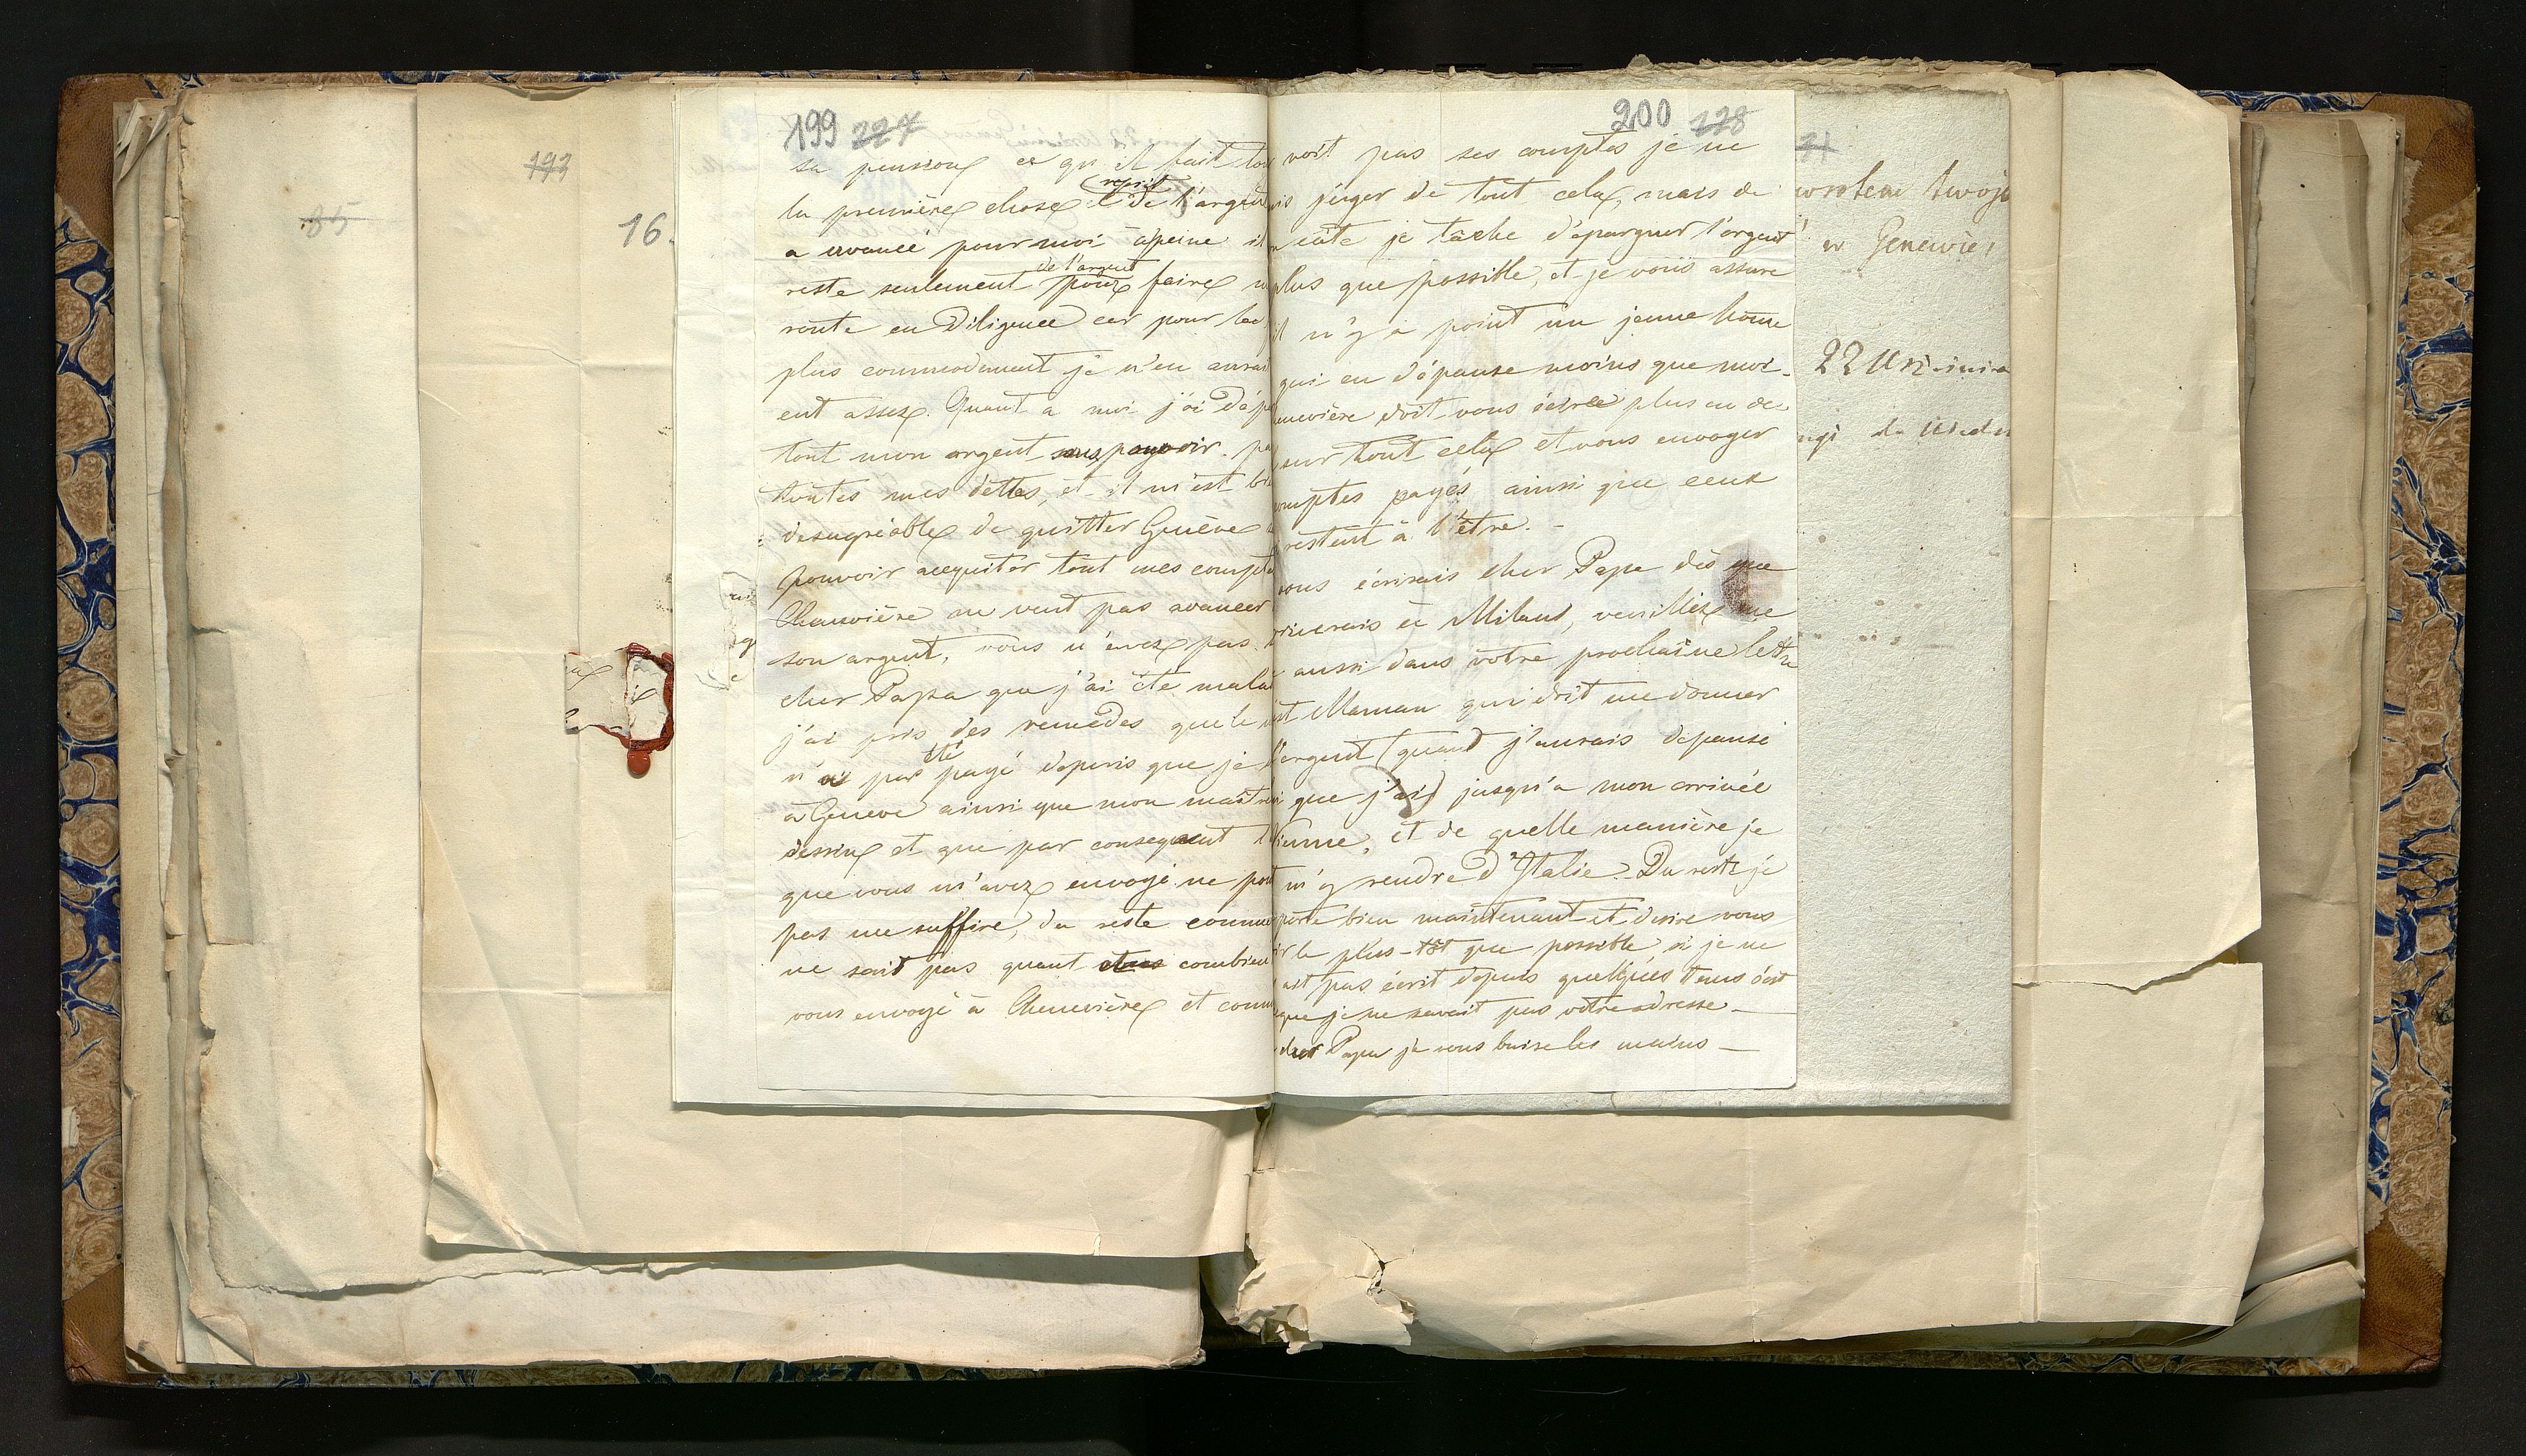 199 227
sa pension ce qu'il fait tou
la première chose
reprit
de l'argent
a avancé pour moi àpeine il
reste seulement
de l'argent
pour faire
route en Diligence car pour la
plus commodement je n'en aurai
ent assez. Quant a moi j'ai dép
tout mon argent sans pouvoir pa
toutes mes dettes, et il m'est bi
desagréable de quitter Genève
pouvoir acquitter tout mes compte
Chenvière ne veut pas avancer
son argent, vous n'avez pas
cher Papa que j'ai été mala
j'ai pris des remèdes que le
n'ai pas
été
payé depuis que je
à Geneve ainsi que mon maitre
dessin et que par consequent l
que vous m'avez envoyé ne peut
pas me suffire, du reste comme
ne sait pas quant combien
vous envoyé à Chenevière et comm
200 128
voit pas ses comptes je ne
is juger de tout cela, mais de
côté je tâche d'épargner l'argent
plus que possible, et je vous assure
il n'y a point un jeune home
qui en dépanse moins que moi-
enevière doit vous écrire plus en de
sur tout cela et vous envoyer
omptes payés ainsi que ceux
restent à l'être.-
vous écrirais cher Papa dès que
riverais à Milan, veuillez me
aussi dans vôtre prochaine lettre
est Maman qui doit me donner
l'argent (quand j'aurais depansé
que j'ai) jusqu'a mon arrivée
ienne, et de quelle manière je
m'y rendre d'Italie.- Du reste je
porte bien maintenant et desire vous
ir le plus-tôt que possible, si je ne
ait pas écrit depuis quelques tems c'est
que je ne savait pas vôtre adresse-
cher Papa je vous baise les mains-
193
85
16.
21
wrotem twoje
w Genewie